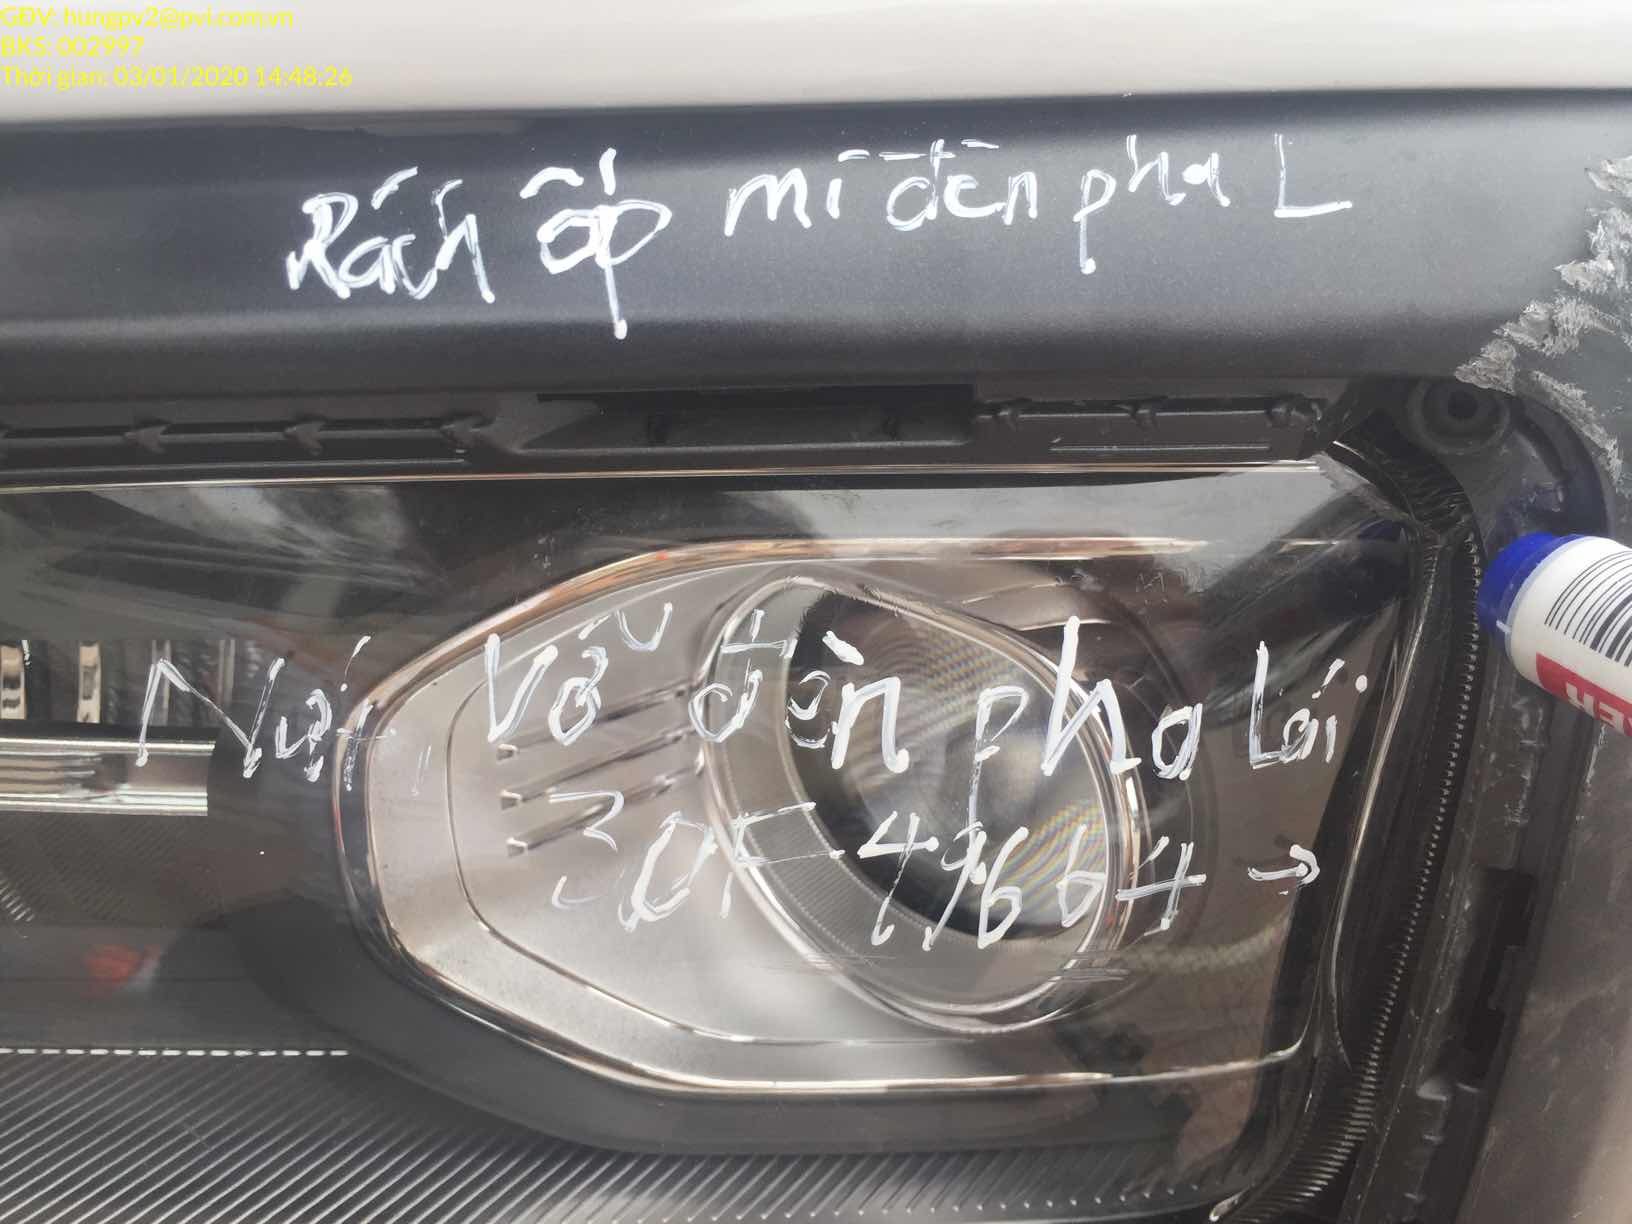 GĐV: hungpv2@pvi.com.vn
BKS: 002997
Thời gian: 03/01/2020 14:48:26
Rách ốp mí đèn pha L
Nứt, Vỡ đèn pha Lái
30F-496.64 →